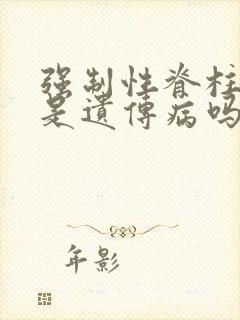 强制性脊柱
是遗传病吗
年影